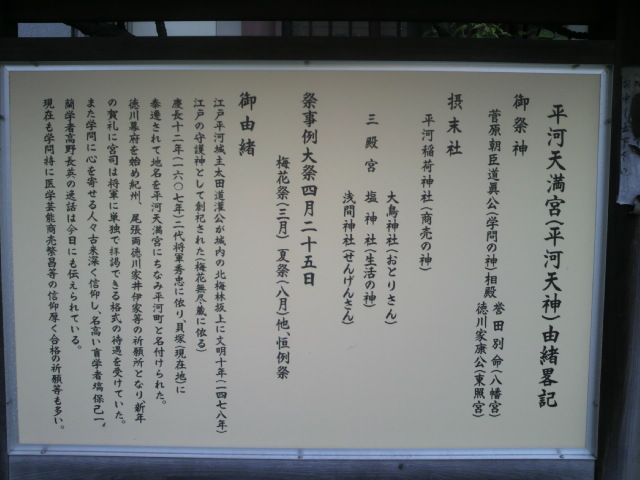 平河天満宮(平河天神)由緒畧記
御祭神
菅原朝臣道真公(学問の神)相殿 誉田別命(八幡宮)
徳川家康公(東照宮)
摂末社
平河稲荷神社(商売の神)
大鳥神社(おとりさん)
三殿宮 塩神社(生活の神)
浅間神社(せんげんさん)
祭事例大祭四月二十五日
梅花祭(三月)夏祭(八月)他、恒例祭
御由緒
江戸平河城主太田道灌公が城内の北梅林坂上に文明十年(一四七八年)
江戸の守護神として創祀された(梅花無尽蔵に依る)
慶長十二年(一六〇七年)二代将軍秀忠に依り、貝塚(現在地)に
奉遷されて地名を平河天満宮にちなみ平河町と名付けられた。
徳川幕府を始め紀州、尾張両徳川家井伊家等の祈願所となり、新年
の賀礼に宮司は将軍に単独で拝謁できる格式の待遇を受けていた。
また学問に心を寄せる人々古来深く信仰し、名高い盲学者塙保己一、
蘭学者高野長英の逸話は今日にも伝えられている。
現在も学問特に医学芸能商売繁昌等の信仰厚く合格の祈願等も多い。